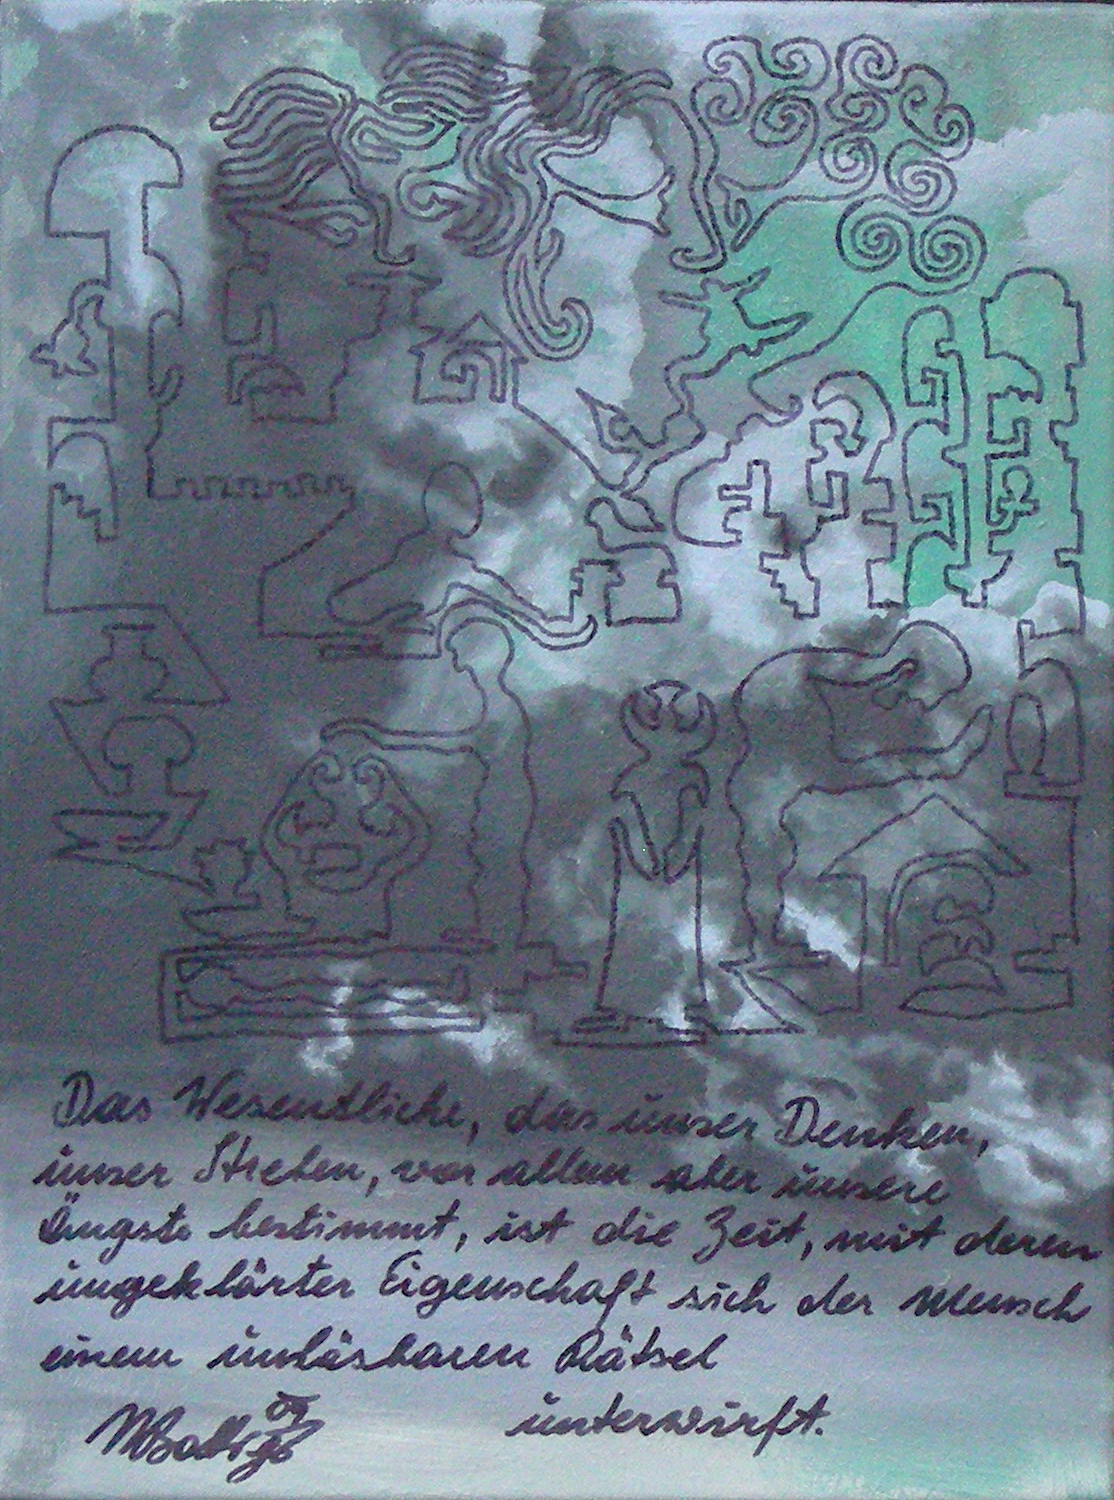 Das Wesentliche, das unser Denken,
unser Streben, vor allem aber unsere
Ängste bestimmt, ist die Zeit, mit deren
ungeklärter Eigenschaft sich der Mensch
einem unlösbaren Rätsel
unterwirft.
09